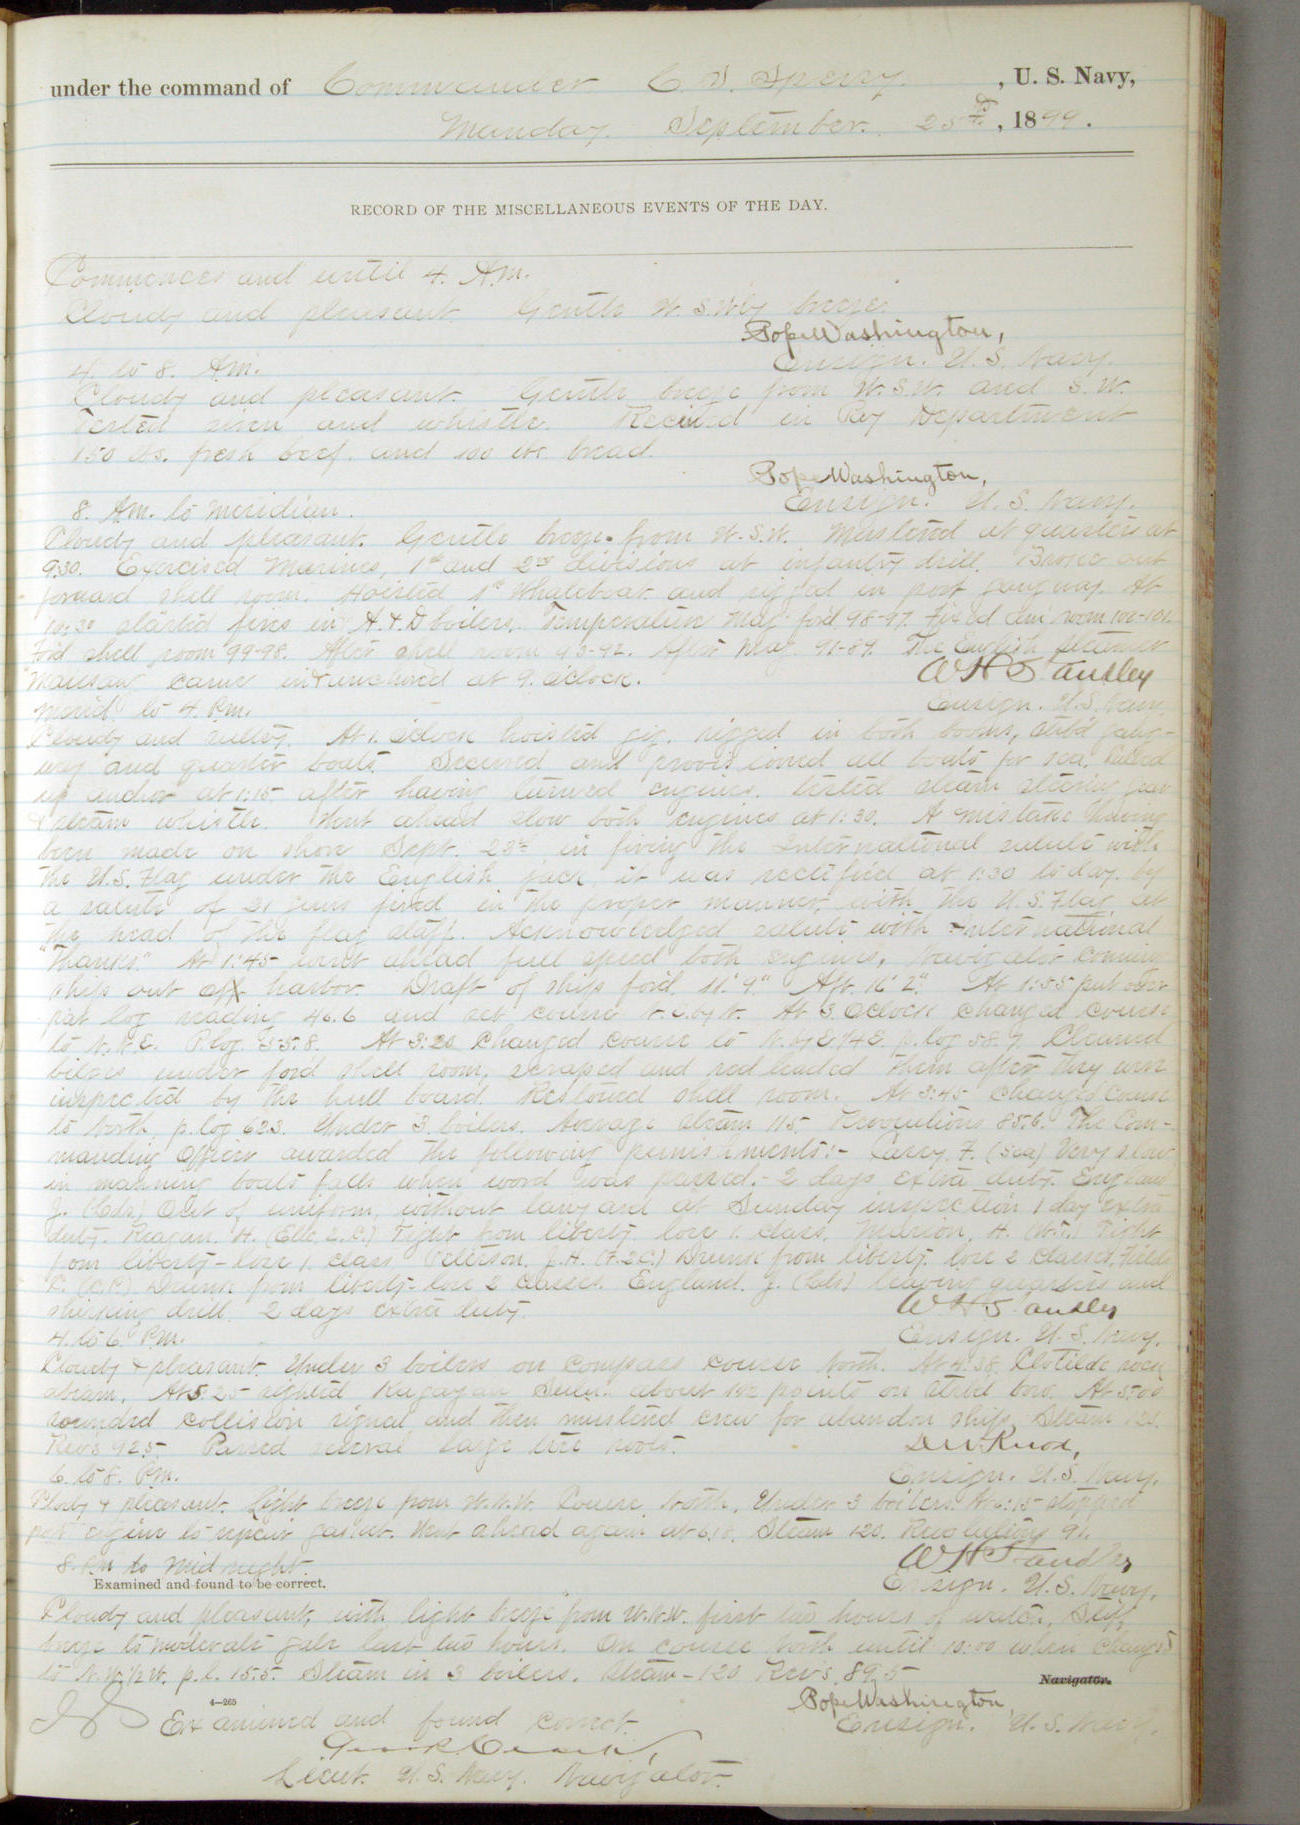 under the command of Commander C. S. Sperry, U. S. Navy,
Monday September 25th, 1899.
RECORD OF THE MISCELLANEOUS EVENTS OF THE DAY.
Commences and until 4. A.m.
Cloudy and pleasant. Gentle W.S.W'ly breeze.
Pope Washington,
Ensign. U.S. Navy.
4. to 8. A.m.
Cloudy and pleasant. Gentle breeze from W.S.W. and S.W.
Tested siren and whistle. Received in Pay Department
150 lbs. fresh beef. and 100 lbs. bread.
Pope Washington,
Ensign. U.S. Navy.
8. A.m. to Meridian.
Cloudy and pleasant. Gentle breeze from W.S.W. Mustered at quarters at
9:30. Exercised Marines, 1st and 2nd divisions at infantry drill. Broke out
forward shell room. Hoisted 1st Whaleboat and rigged in port gangway. At
10:30 started fires in A. & D boilers. Temperature Mag. for'd 98-97. Fixed Am. room 102-101.
For'd shell room 99-98. After shell room 93-92. After Mag. 91-89. The English steamer
Mausaw came in & anchored at 9. o'clock.
W H Standley
Ensign. U.S. Navy.
Merid. to 4. P.m.
Cloudy and sultry. At 1. o'clock hoisted gig. rigged in both booms, stb'd gang-
way and quarter boats. Secured and provisioned all boats for sea. Picked
up anchor at 1:15 after having turned engines. tested steam steering gear
& steam whistle. Went ahead slow both engines at 1:30. A mistake having
been made on shore Sept. 23rd in firing the International salute with
the U.S. Flag under the English jack, it was rectified at 1:30 to day. by
a salute of 21 guns fired in the proper manner, with the U.S. Flag at
the head of the flag staff. Acknowledged salute with International
"Thanks." At 1:45 went ahead full speed both engines, Navigator conning
ship out of harbor. Draft of ship for'd. 11' 9". Aft. 12' 2". At 1:55 put over
pat log reading 46.6 and set course N.E. by N. At 3. o'clock changed course
to N.N.E. P.log 55.8. At 3:20 changed course to N. by E 1/4 E. p.log 58.9. Cleaned
bilges under for'd shell room, scraped and red leaded them after they were
inspected by the hull board. Restowed shell room. At 3:45 changed course
to North, p.log 62.3. Under 3 boilers. Average steam 115. Revolutions 85.6. The Com-
manding Officer awarded the following punishments:- Casey. F. (Sea) Very slow
in manning boats falls when word was passed.- 2 days extra duty. England
J. (Lds.) Out of uniform, without lanyard at Sunday inspection 1 day extra
duty. Reagan. H. (Elec. 2.C.) Tight from liberty. lose 1. class. Merion, H. (W.T.) Tight
from liberty - lose 1. class. Peterson, J.H. (F.2C.) Drunk from liberty. lose 2 classes. Fields
(C.P.) Drunk from liberty. lose 2 classes. England. J. (Lds.) leaving quarters and
shirking drill. 2 days extra duty.
W H Standley
Ensign. U.S. Navy.
4. to 6. P.m.
Cloudy & pleasant. Under 3 boilers on compass course North. At 4:38 Clotilde rock
abeam. At 5:25 sighted Kagayan Sulu. about 1 1/2 points on stb'd bow. At 5:00
sounded collision signal and then mustered crew for abandon ship. Steam 120.
Revs 92.5. Passed several large tree roots.
D.W. Knox,
Ensign. U.S. Navy.
6. to 8. P.m.
Cloudy & pleasant. Light breeze from W.N.W. Course North. Under 3 boilers. At 6:15 stopped
port engine to repair gasket. Went ahead again at 6:18. Steam 120. Revolutions 91.
W H Standley
Ensign. U.S. Navy.
8. P.m to Midnight.
Examined and found to be correct.
Cloudy and pleasant, with light breeze from W.N.W. first two hours of watch, Stiff
breeze to moderate gale last two hours. On course North until 10:00 when changed
to N.W. 1/2 W. p.l. 15.5. Steam in 3 boilers. Steam - 120 Rev's. 89.5
Navigator.
Pope Washington
Ensign. U.S. Navy.
4—265
Examined and found correct.
Lieut. U.S. Navy. Navigator.